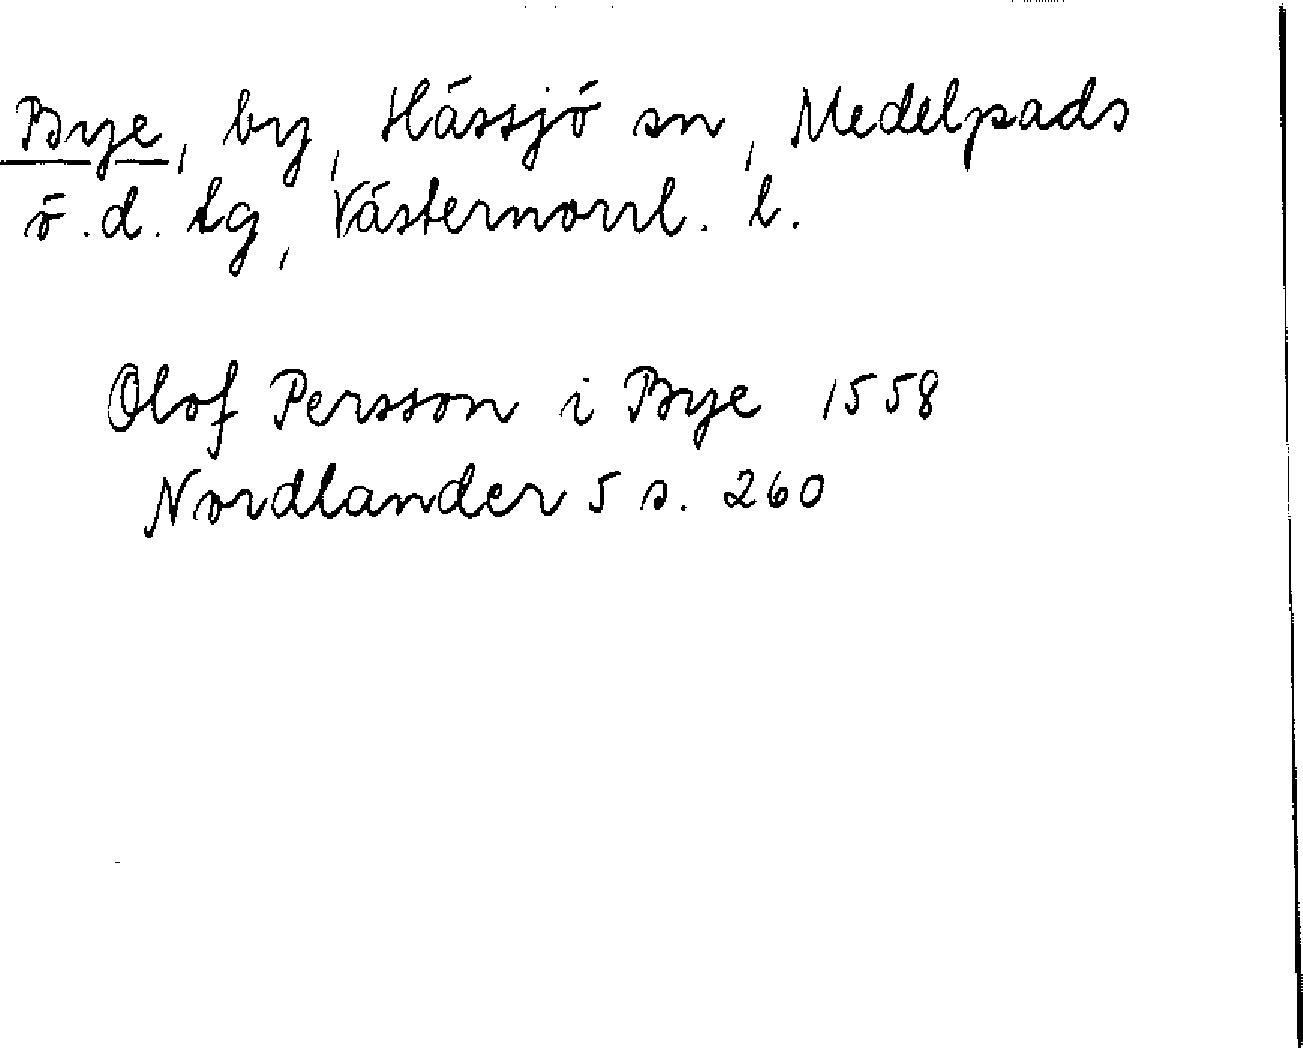 Bye, by, Hässjö sn, Medelpads
ö.d. tg, Västernorrl. l.
Olof Persson i Bye 1558
Nordlander 5 s. 260